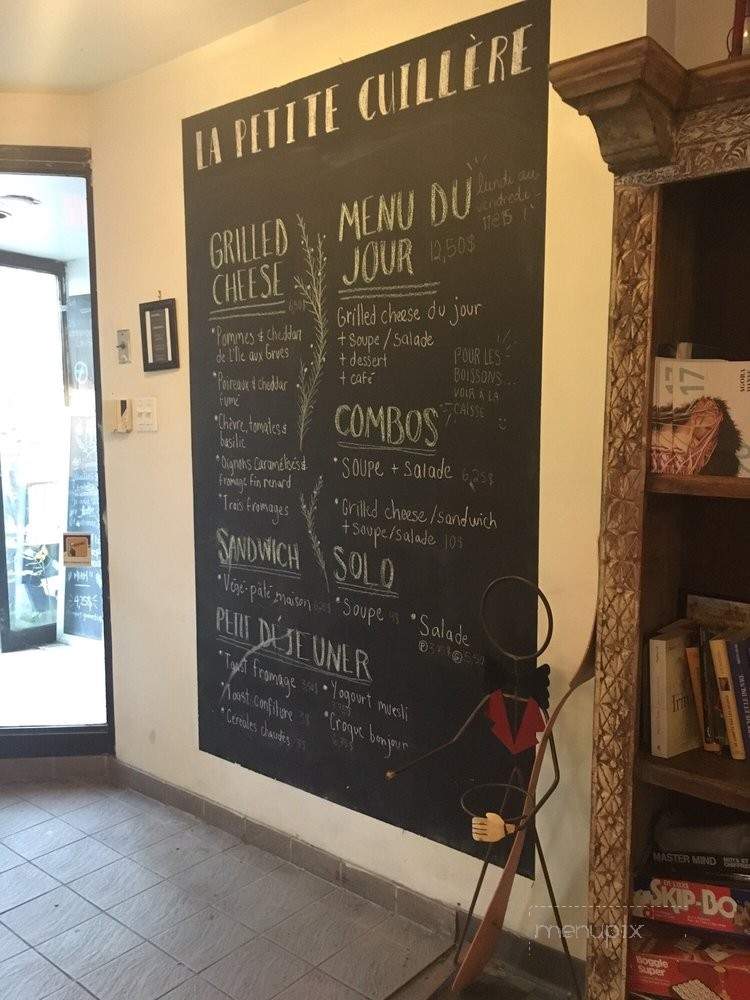 LA PETITE CUILLÈRE
GRILLED
CHEESE
* Pommes & cheddar
de l'Île aux Grues
* Poireaux & cheddar
fumé
* Chèvre, tomates &
basilic
* Oignons caramélisés &
fromage fin renard
* Trois fromages
SANDWICH
* Végé-pâté maison
PETIT DÉJEUNER
* Toast fromage
* Toast confiture
* Céréales chaudes
* Yogourt muesli
* Croque bonjour
MENU DU
JOUR 12,50$
lundi au
vendredi
11 à 15
Grilled cheese du jour
+ soupe/salade
+ dessert
+ café
POUR LES
BOISSONS...
VOIR À LA
CAISSE
COMBOS
* SOUPE + SALADE 6,25$
* Grilled cheese/sandwich
+ soupe/salade 10$
SOLO
* Soupe
* Salade
17
MASTER MIND
SKIP-BO
Boggle
Super
menupix